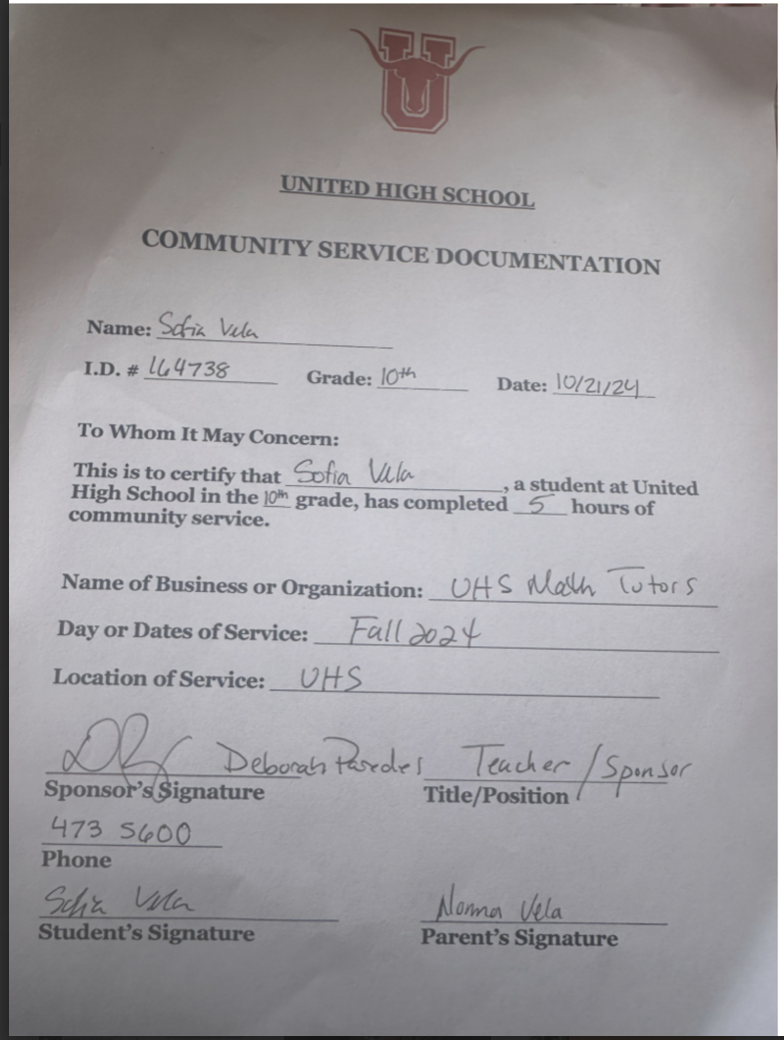 U
UNITED HIGH SCHOOL
COMMUNITY SERVICE DOCUMENTATION
Name: Sofia Vela
I.D. # 164738 Grade: 10th Date: 10/21/24
To Whom It May Concern:
This is to certify that Sofia Vela, a student at United
High School in the 10th grade, has completed 5 hours of
community service.
Name of Business or Organization: UHS Math Tutors
Day or Dates of Service: Fall 2024
Location of Service: UHS
Deborah Paredes Teacher / Sponsor
Sponsor's Signature Title/Position
473 5600
Phone
Sofia Vela Norma Vela
Student's Signature Parent's Signature